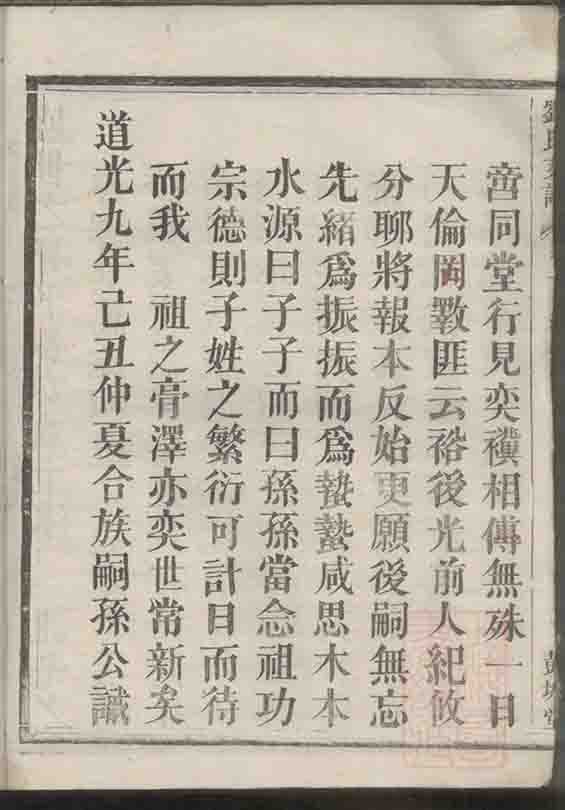 啻同堂行見奕禩相傳無殊一日
天倫罔斁匪云裕後光前人紀攸
分聊將報本反始更願後嗣無忘
先緒爲振振而爲蟄蟄咸思木本
水源曰子子而曰孫孫當念祖功
宗德則子姓之繁衍可計日而待
而我 祖之膏澤亦奕世常新矣
道光九年己丑仲夏合族嗣孫公識